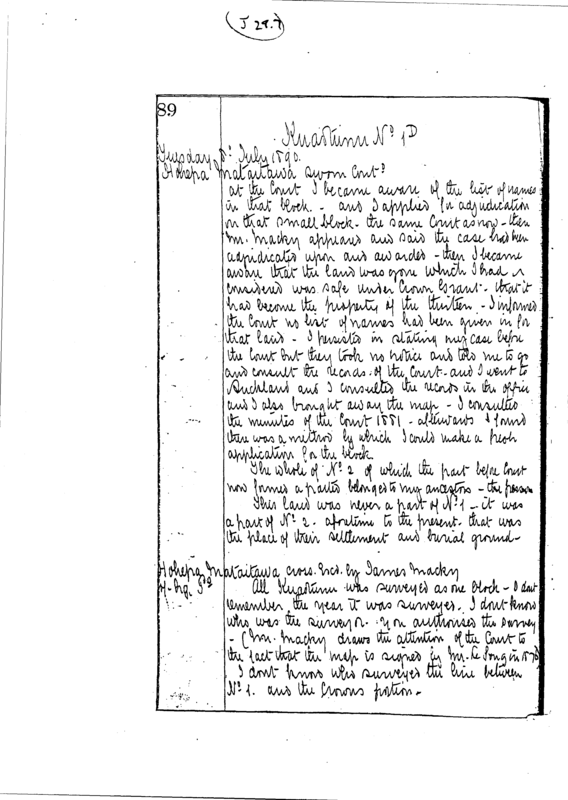 J 28.7
89
Kuaotunu No 1D
Tuesday 8th July 1890.
Hohepa Mataitawa sworn Contd
at the Court I became aware of the list of names
in that block. - and I applied for adjudication
on that small block - the same Court as now - then
Mr. Macky appeared and said the case had been
adjudicated upon and awarded - then I became
aware that the land was gone which I had
considered was safe under Crown Grant - that it
had become the property of the thirteen - I informed
the Court no list of names had been given in for
that land - I persisted in stating my case before
the Court but they took no notice and told me to go
and consult the records of the Court - and I went to
Auckland and I consulted the records in the office
and I also brought away the map - I consulted
the minutes of the Court 1881 - afterwards I found
there was a method by which I could make a fresh
application for the block.
The whole of No 2 of which the part before Court
now formed a part belonged to my ancestors - the
This land was never a part of No 1 - it was
a part of No 2. to the present. that was
the place of their settlement and burial ground -
Hohepa Mataitawa cross. Exd. by James Macky
All Kuaotunu was surveyed as one block - I dont
remember the year it was surveyed. I dont know
who was the surveyor. or authorised the survey
- (Mr. Macky draws the attention of the Court to
the fact that the map is signed by Mr. in 1878
I dont know who surveyed the line between
No 1. and the Crowns portion -